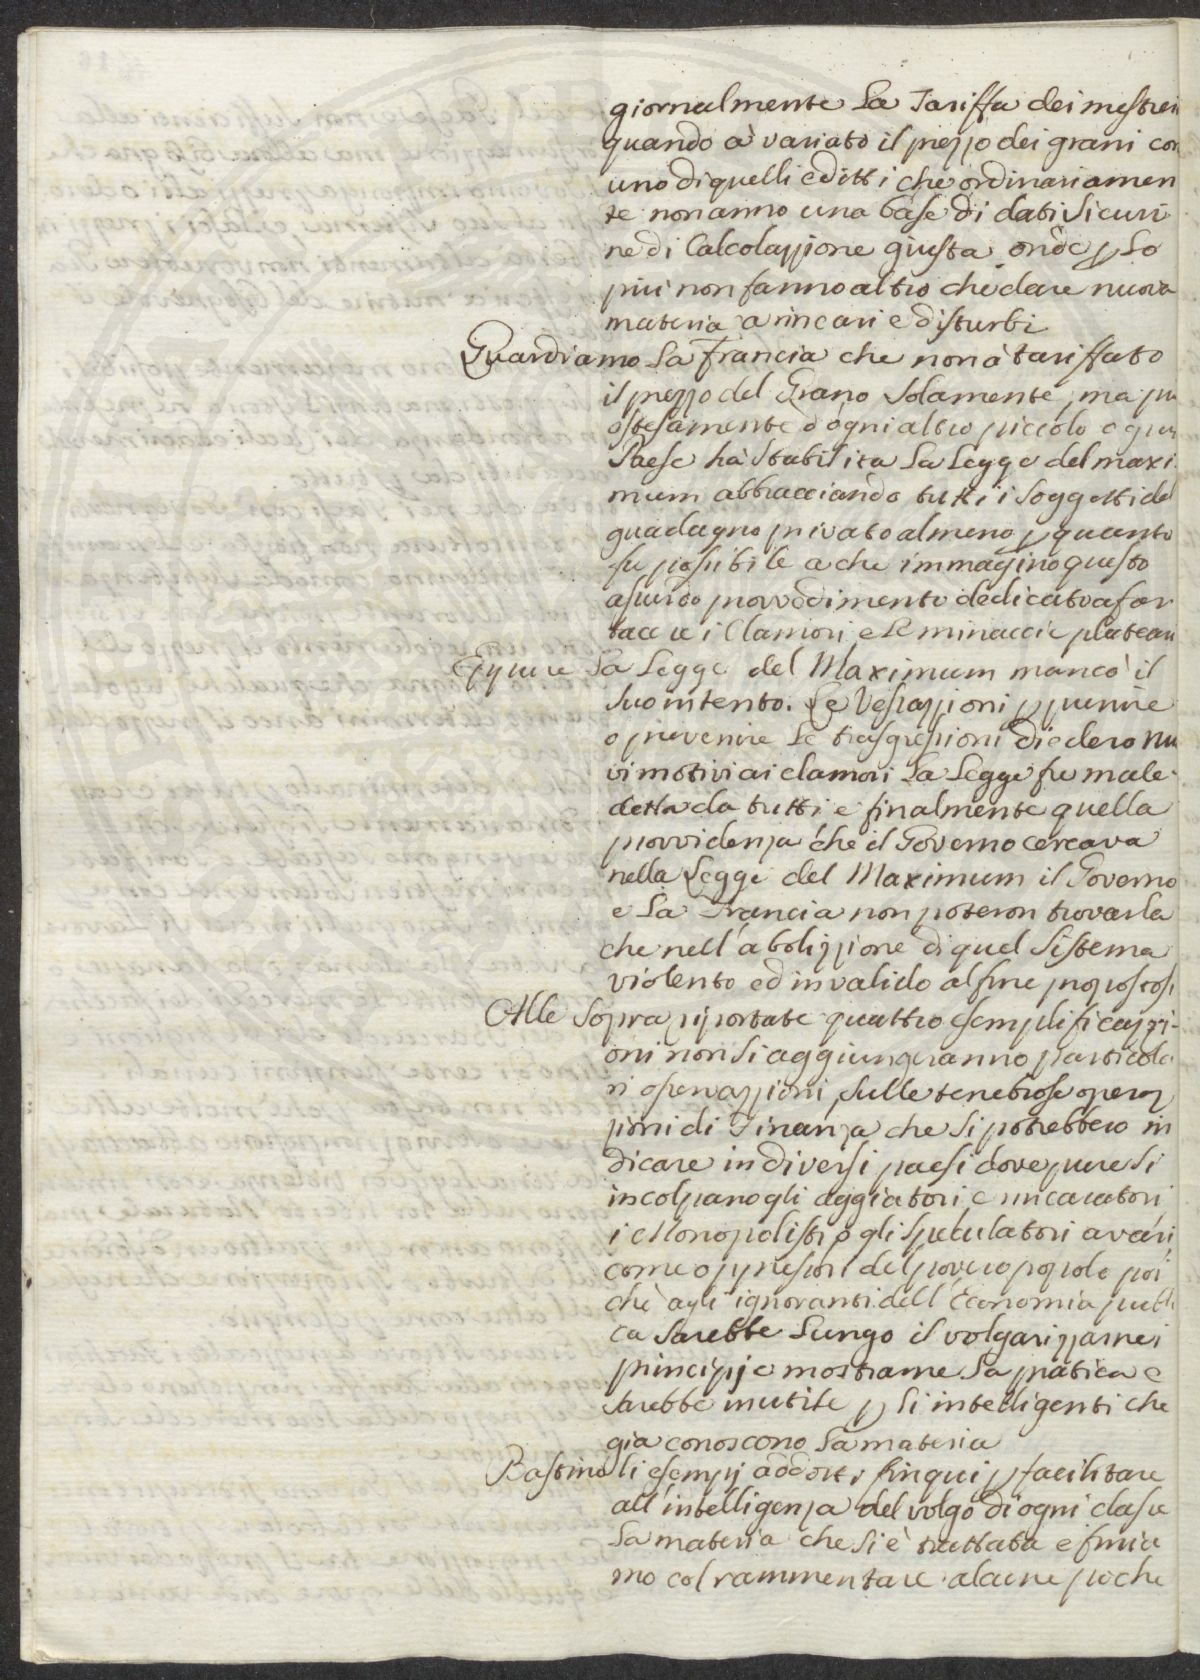 giornalmente La Tariffa dei mestieri
quando à variato il prezzo dei grani con
uno di quelli editti che ordinariamen
te non anno una base di dati sicuri
ne di Calcolazzione giusta, onde p Lo
più non fanno altro che dare nuova
materia a rincari e disturbi
Guardiamo La Francia che non à tariffato
il prezzo del Grano Solamente, ma più
estesamente d'ogni altro piccolo o gran
Paese hà Stabilita La Legge del maxi
mum abbracciando tutti i Soggetti del
guadagno privato almeno p quanto
fu possibile a chi immaginò questo
assurdo provvedimento dedicato a for
tacere i Clamori e Le minaccie plateari
Eppure La Legge del Maximum mancò il
Suo intento. Le Vessazzioni p punire
o prevenire Le trasgressioni diedero nuo
vi motivi ai clamori La Legge fu male
detta da tutti e finalmente quella
provvidenza che il Governo cercava
nella Legge del Maximum il Governo
e La Francia non poteron trovarla
che nell'abolizzione di quel Sistema
violento ed invalido al fine propostosi
Alle Sopra riportate quattro esemplificazzi-
oni non Si aggiungeranno particola
ri osservazzioni Sulle tenebrose operaz
zioni di Finanza che Si potrebbero in
dicare in diversi paesi dove pure Si
incolpano gli aggiatori e rincaratori
i Monopolisti e gli Speculatori avari,
come oppressori del povero popolo poi
chè agli ignoranti dell'Economia publi
ca Sarebbe Lungo il volgarizzarne i
principj e mostrarne La pratica e
Sarebbe inutile p Li intelligenti che
già conoscono La materia
Bastino li esempj addotti finqui p facilitare
all'intelligenza del volgo di ogni classe
La materia che Si è trattata e finia
mo col rammentare alcune poche